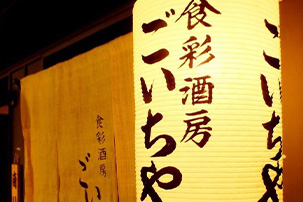 食彩酒房
ごいちや
食彩酒房
ごい